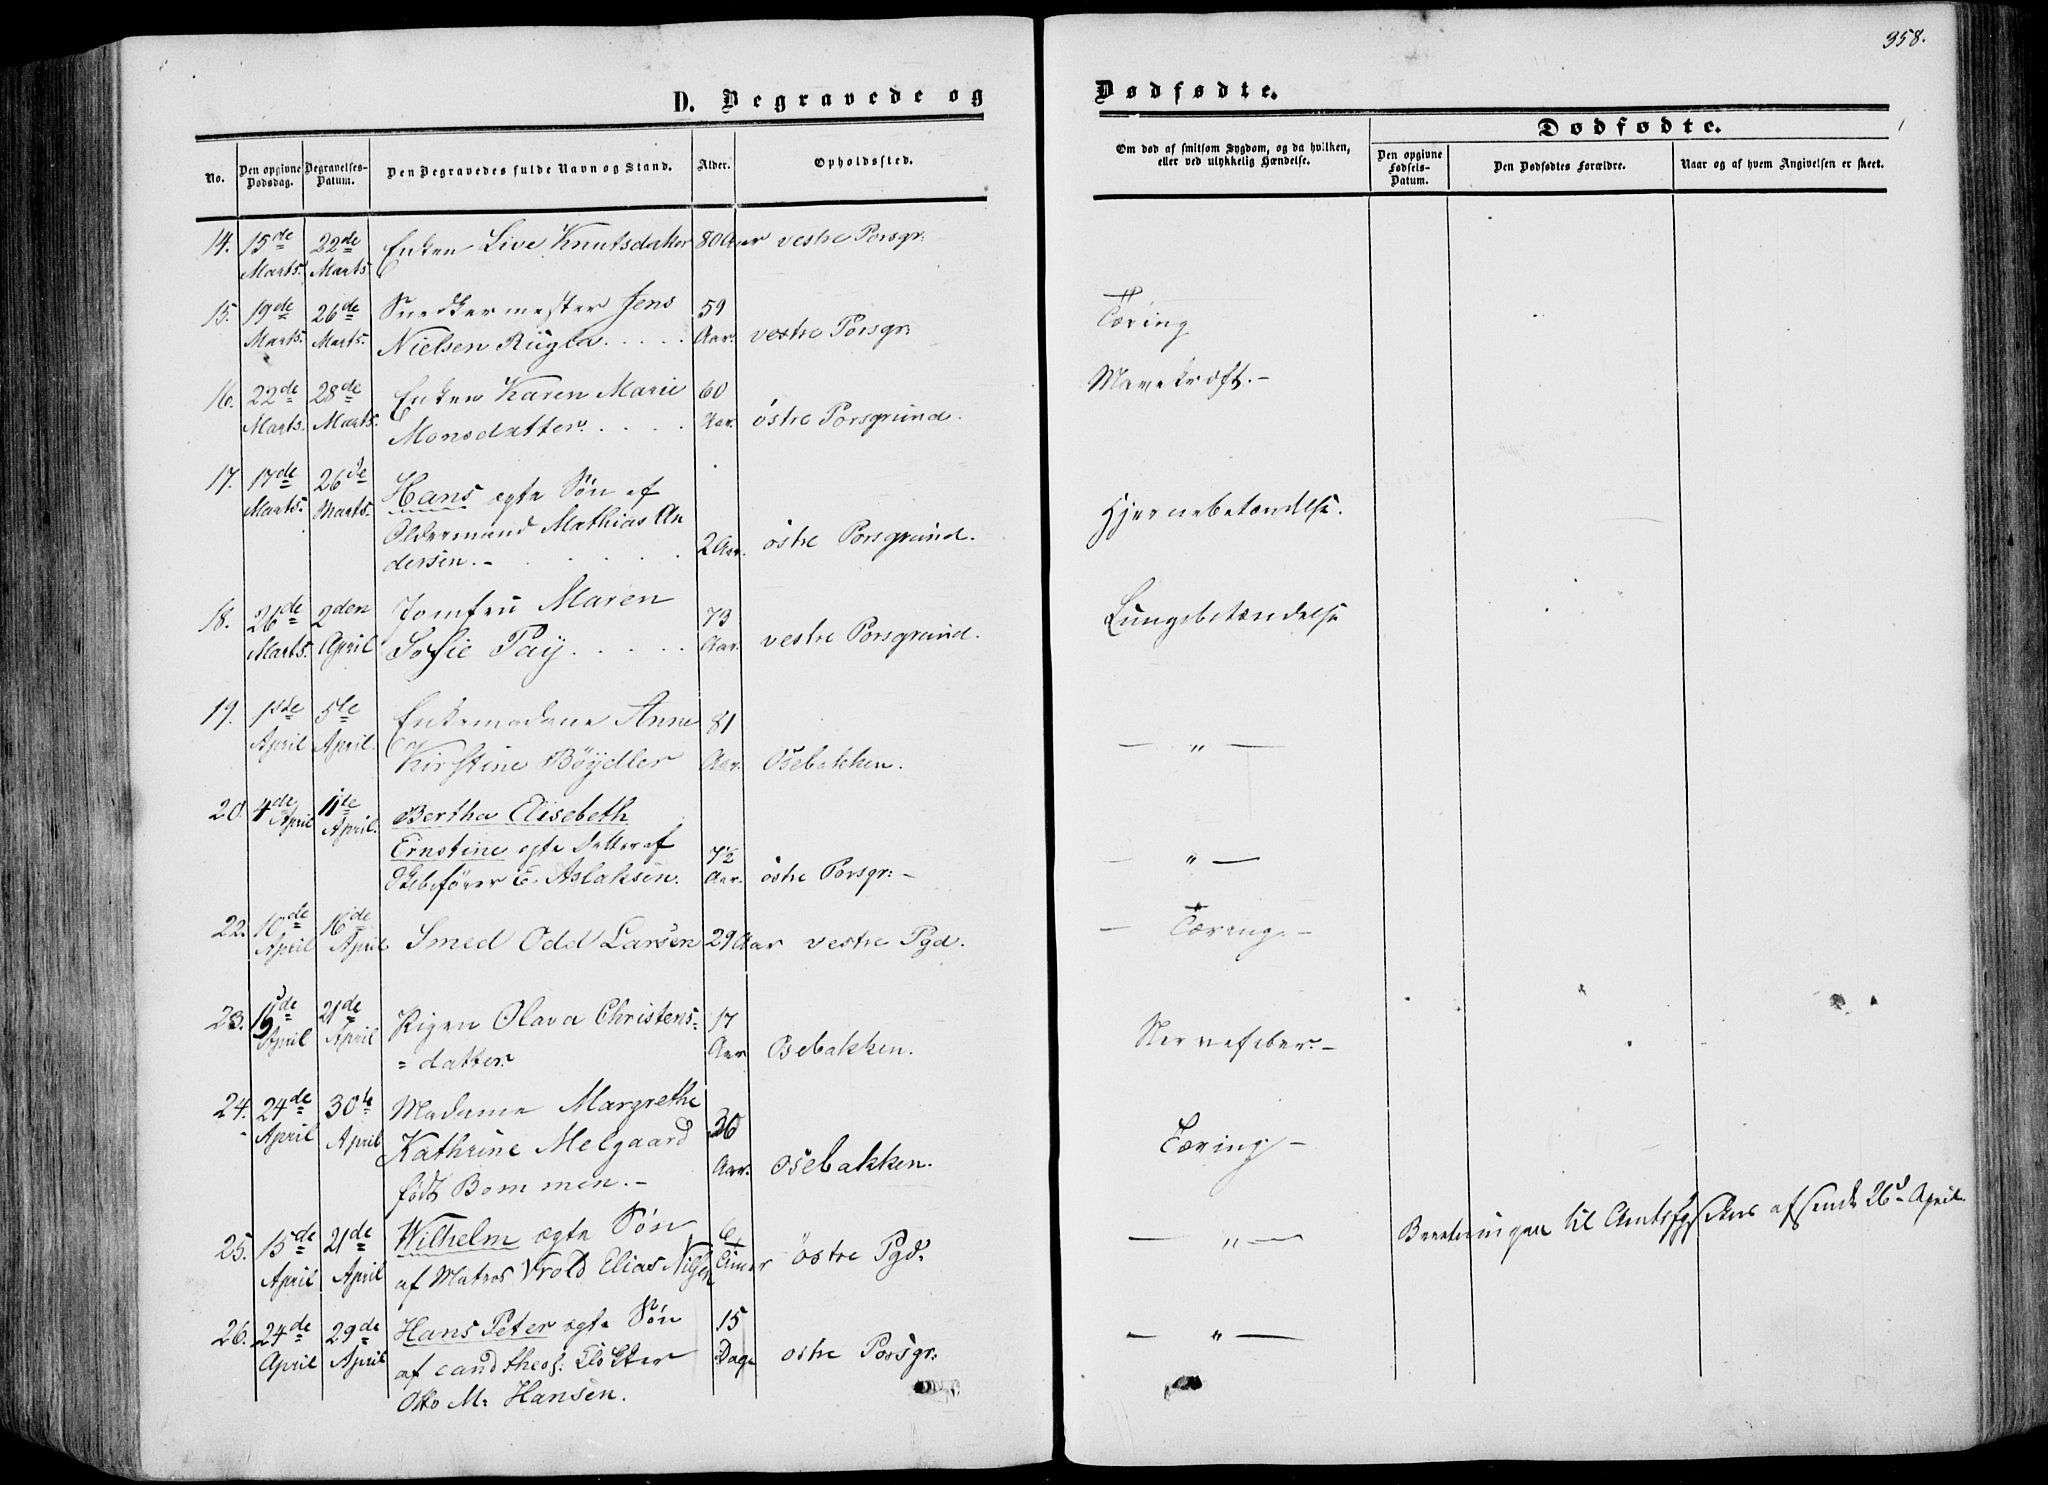 358.
D. Begravede og
Dødfødte.
No.
Den opgivne Dødsdag.
Begravelses-Datum.
Den Begravedes fulde Navn og Stand.
Alder.
Opholdssted.
Om død af smitsom Sygdom, og da hvilken, eller ved ulykkelig Hændelse.
Dødfødte.
Den opgivne Fødsels-Datum.
Den Dødfødtes Forældre.
Naar og af hvem Angivelsen er skeet.
14. 15de 22de Enken Live Knutsdatter 80 Aar vestre Porsgr:
Marts. Marts.
15. 19de 26de Snedkermester Jens 59 Tæring
Marts. Marts. Nielsen Rugla. . . . . Aar. vestre Porsgr:
16. 22de 28de Enken Karen Marie 60 Mavekræft. -
Marts. Marts. Monsdatter. . . . . Aar. østre Porsgrund.
17. 17de 26de Hans ægte Søn af Hjernebetændelse.
Marts. Marts. Oldermand Mathias An
dersen. - . . . . 2 Aar. østre Porsgrund.
18. 26de 2den Jomfru Maren 73 Lungebetændelse
Marts. April Sofie Paij. . . . . Aar. vestre Porsgrund.
19. 1ste 5te Enkemadame Anne 81 — " —
April April. Kirstine Böydler Aar. Osebakken.
20. 4de 11te Bertha Elisebeth
April April. Ernstine ægte Datter af 7½ — " —
Skibsfører E. Aslaksen. Aar. østre Porsgr: -
22. 10de 16de — Tæring. -
April April Smed Odd Larsen 29 Aar vestre Pgd.
23. 15de 21de Pigen Olava Christens= 17 Nervefeber. -
April April = datter. Aar Osebakken.
24. 24de 30te Madame Margrethe 36 Tæring -
April April Kathrine Melgaard
født Bommen. - Aar. Osebakken.
25. 15de 21de Wilhelm ægte Søn 6 — " — Beretningen til Amtsfysikus afsendt 26de April.
April April af Matros Vrold Elias Nilsen Timer østre Pgd.
26. 24de 29de Hans Peter ægte Søn 15 — " —
April April af cand theol: Klokker Dage østre Porsgr:
Otto M. Hansen.